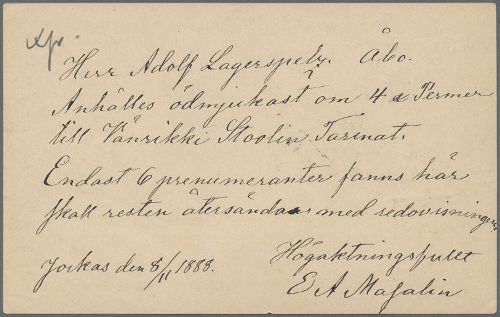 Herr Adolf Lagerspetz. Åbo.
Anhålles ödmjukast om 4 a Permer
till Vänrikki Stoolin Tarinat.
Endast 6 prenumeranter fanns här
skall resten återsändas med redovisningen
Jockas den 8/11 1888.
Högaktningsfullt
E A Majalin